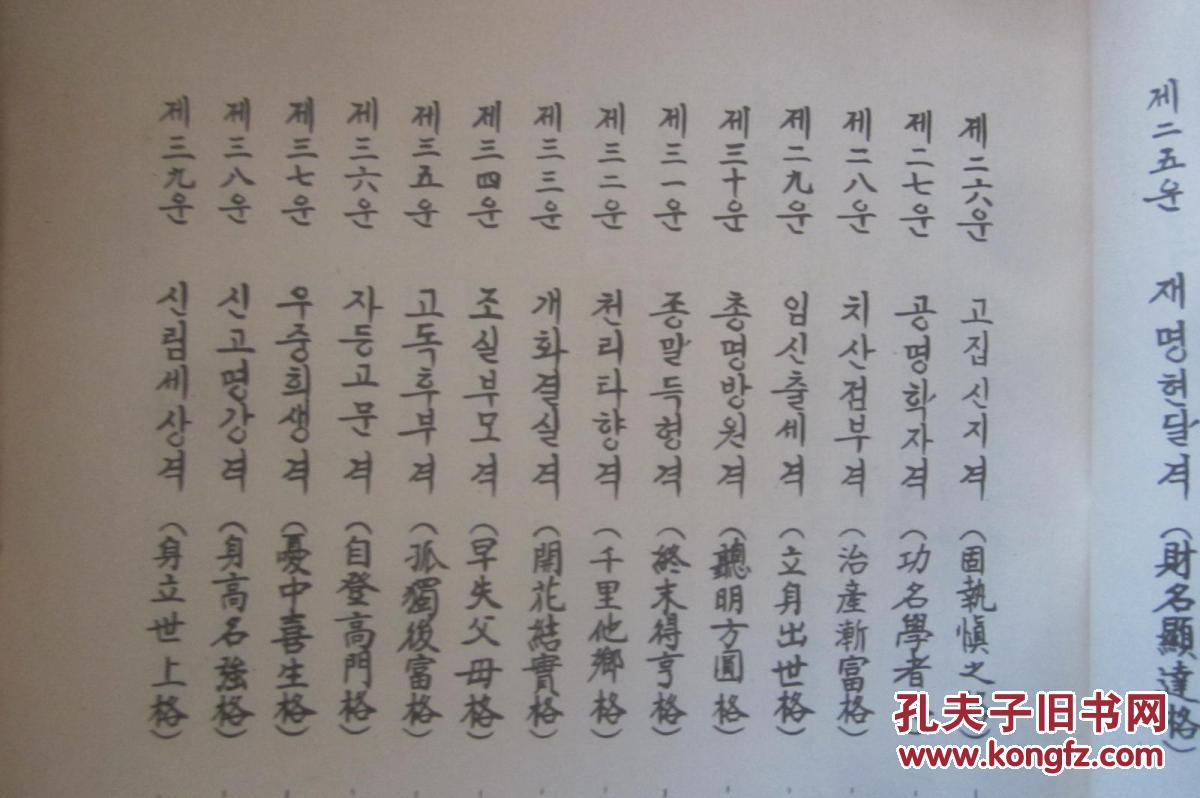 제二五운 재명현달격 (財名顯達格)
제二六운 고집신지격 (固執愼之)
제二七운 공명학자격 (功名學者
제二八운 치산점부격 (治產漸富格)
제二九운 입신출세격 (立身出世格)
제三十운 총명방원격 (聽明方圓格)
제三一운 종말득형격 (終末得亨格)
제三二운 천리타향격 (千里他鄉格)
제三三운 개화결실격 (開花結實格)
제三四운 조실부모격 (早失父母格)
제三五운 고독후부격 (孤獨後富格)
제三六운 자등고문격 (自登高門格)
제三七운 우중희생격 (憂中喜生格)
제三八운 신고명강격 (身高名強格)
제三九운 신립세상격 (身立世上格)
孔夫子旧书网
www.kongfz.com